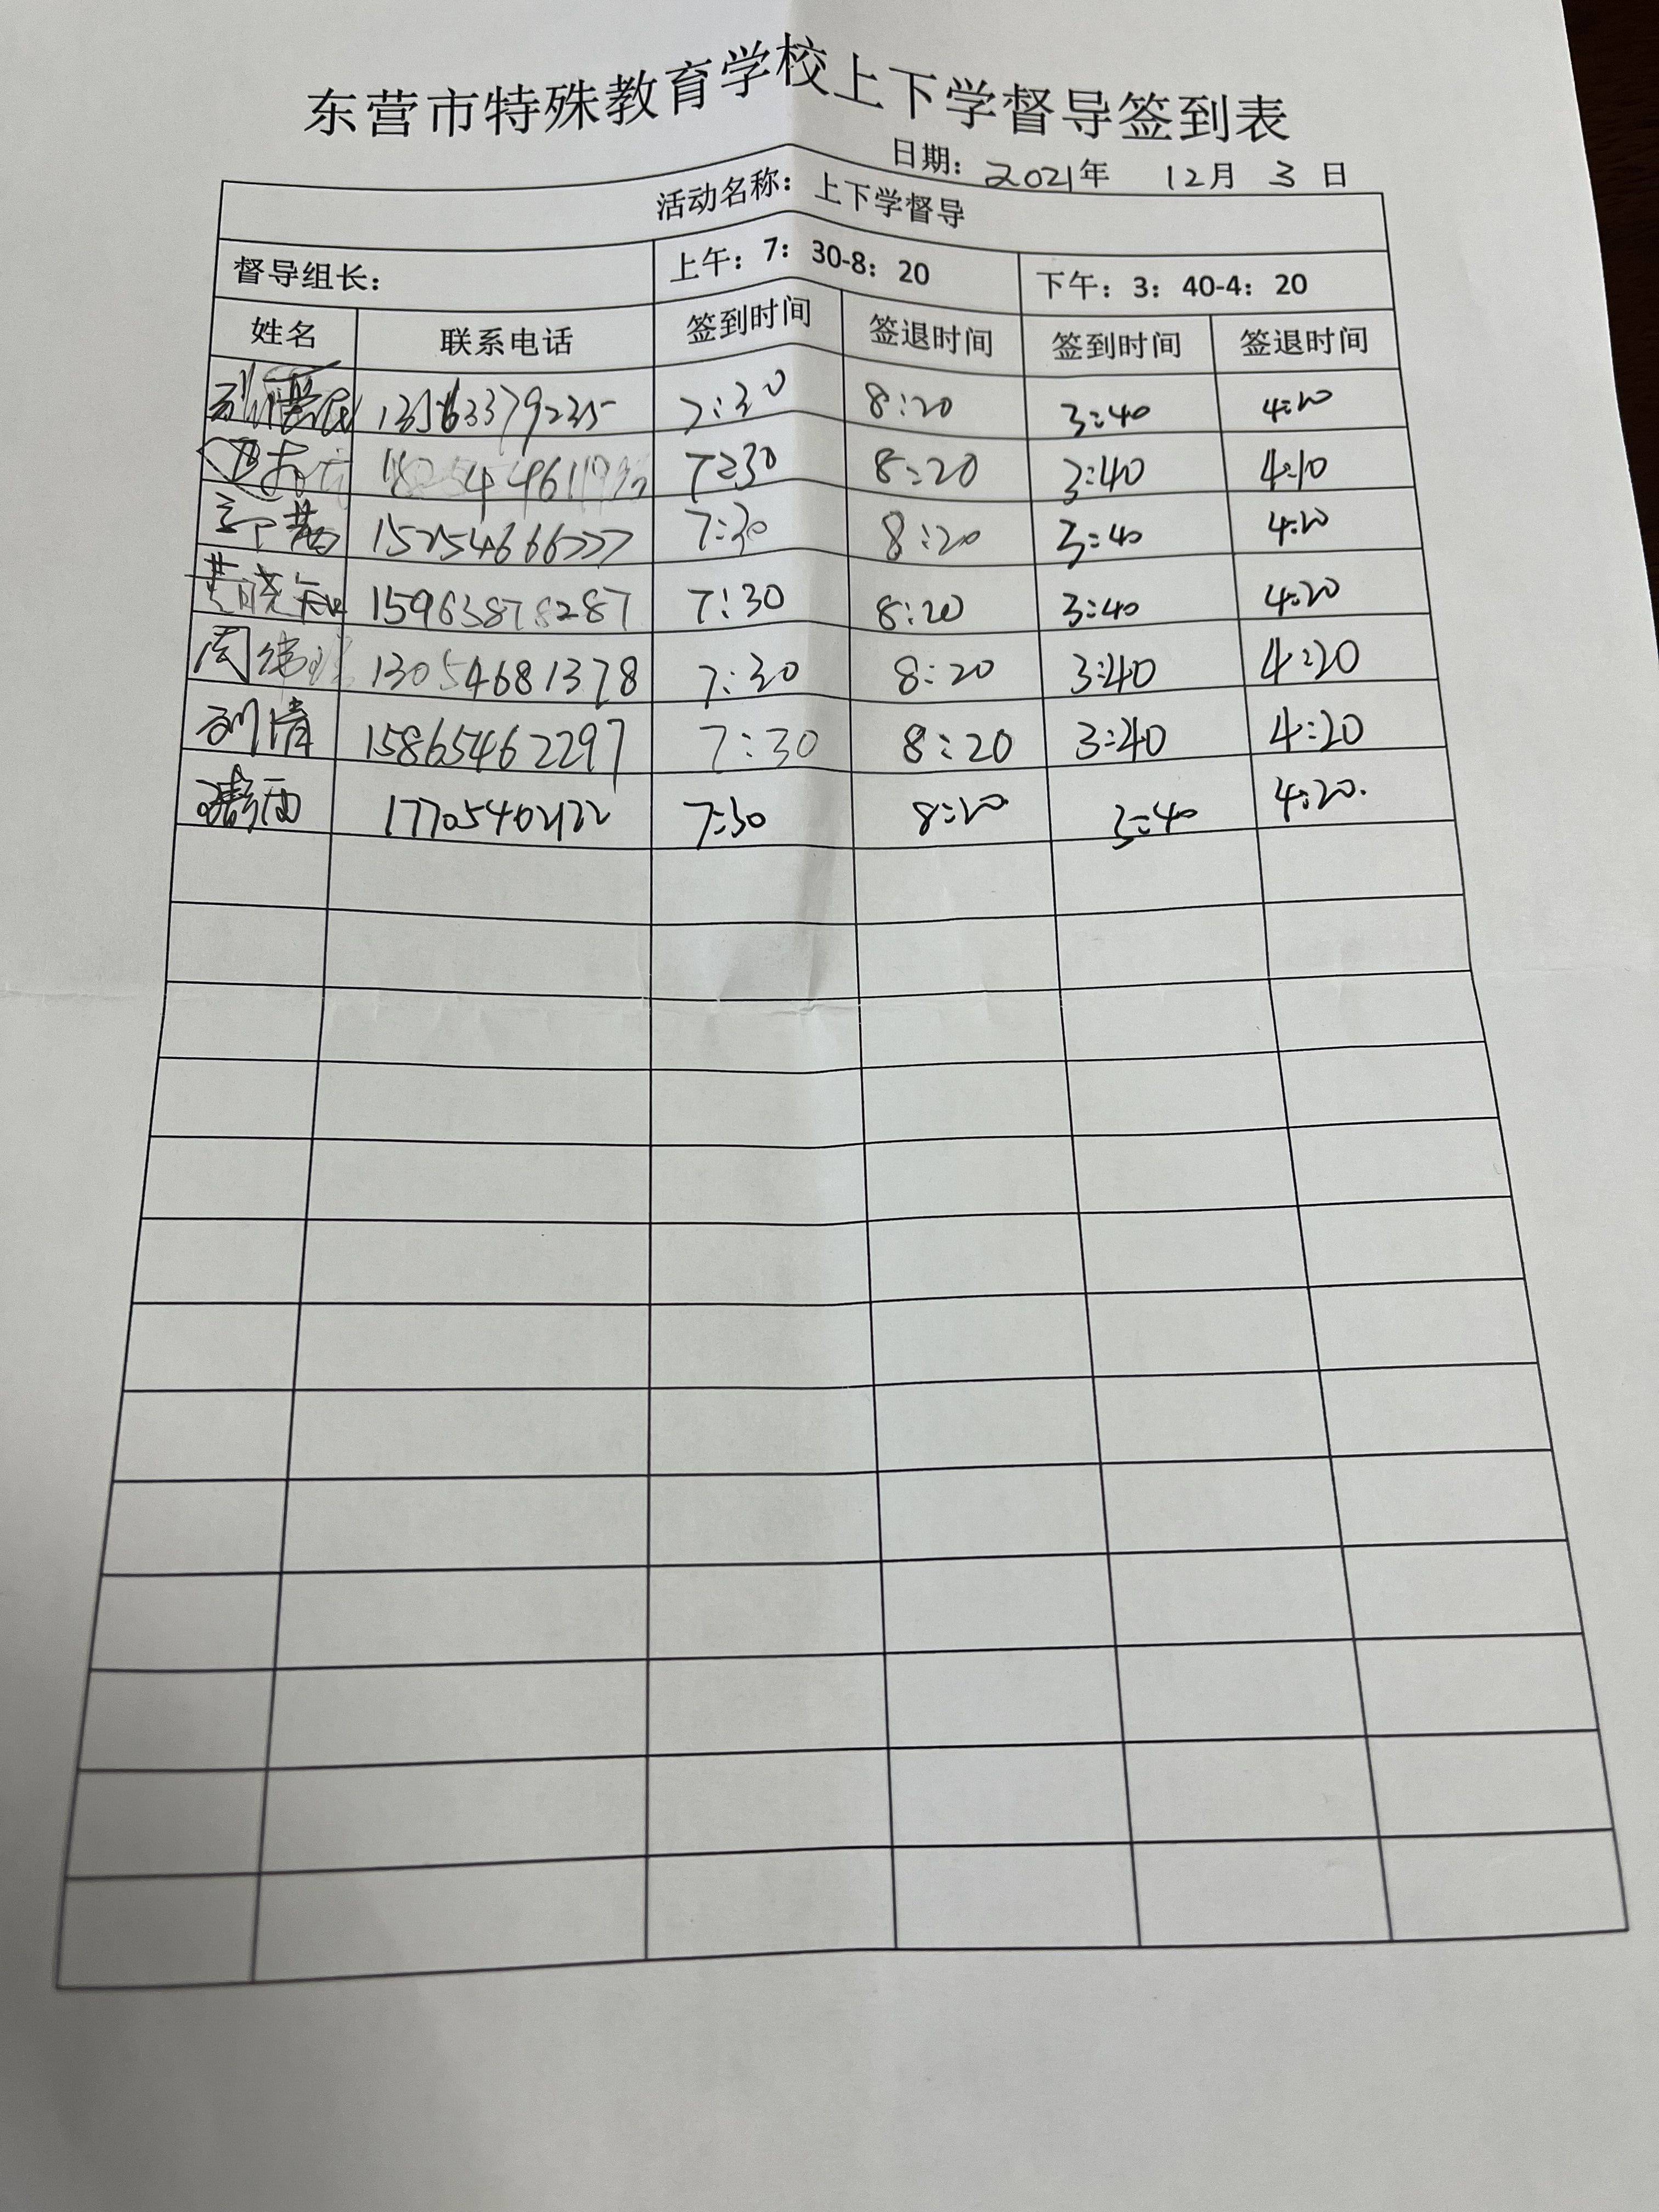 东营市特殊教育学校上下学督导签到表
日期：2021年 12月 3 日
活动名称：上下学督导
督导组长： 上午：7：30-8：20 下午：3：40-4：20
姓名 联系电话 签到时间 签退时间 签到时间 签退时间
13563379235 7:30 8:20 3:40 4:20
7:30 8:20 3:40 4:10
15254666777 7:30 8:20 3:40 4:20
黄晓 15963878287 7:30 8:20 3:40 4:20
周 13054681378 7:30 8:20 3:40 4:20
刘清 15865462297 7:30 8:20 3:40 4:20
17705402122 7:30 8:20 3:40 4:20.